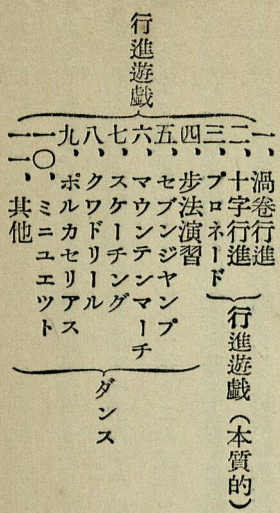 行進遊戯
一、渦卷行進
二、十字行進
三、プロネード
四、步法演習
五、セブンジヤンプ
六、マウンテンマーチ
七、スケーチング
八、クワドリール
九、ポルカセリアス
一〇、ミニユエツト
一一、其他
行進遊戯（本質的）
ダンス